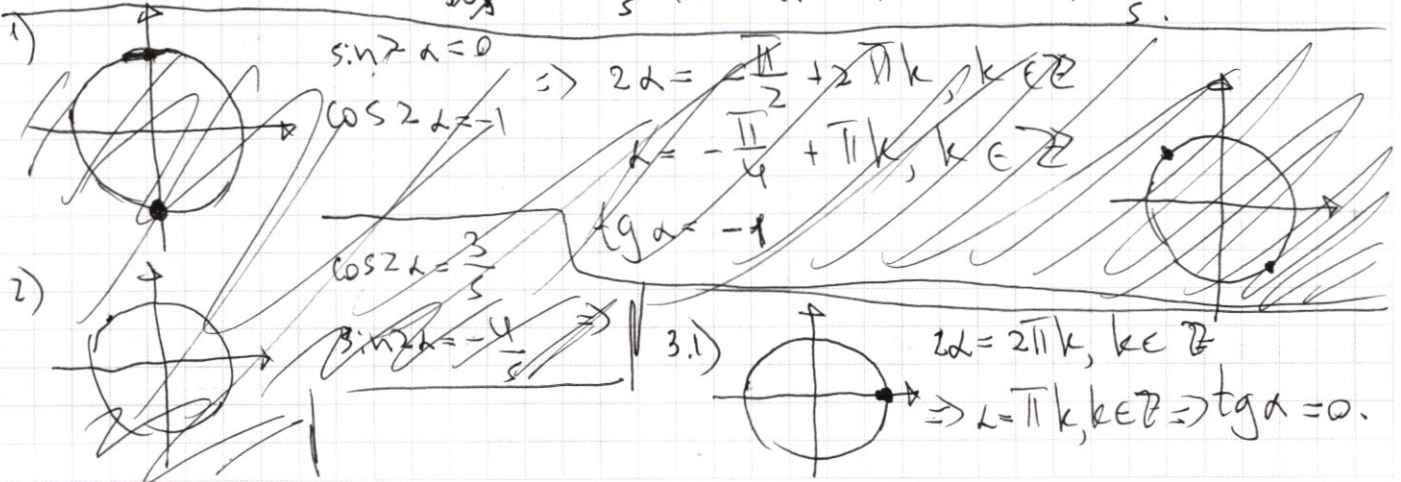 1)
sin2α=0
cos2α=-1
=> 2α= -π/2 +2πk, k∈ℤ
α= -π/4 +πk, k∈ℤ
tgα= -1
2)
cos2α=3/5
sin2α=-4/5 =>
3.1)
2α=2πk, k∈ℤ
=> α=πk, k∈ℤ => tgα=0.